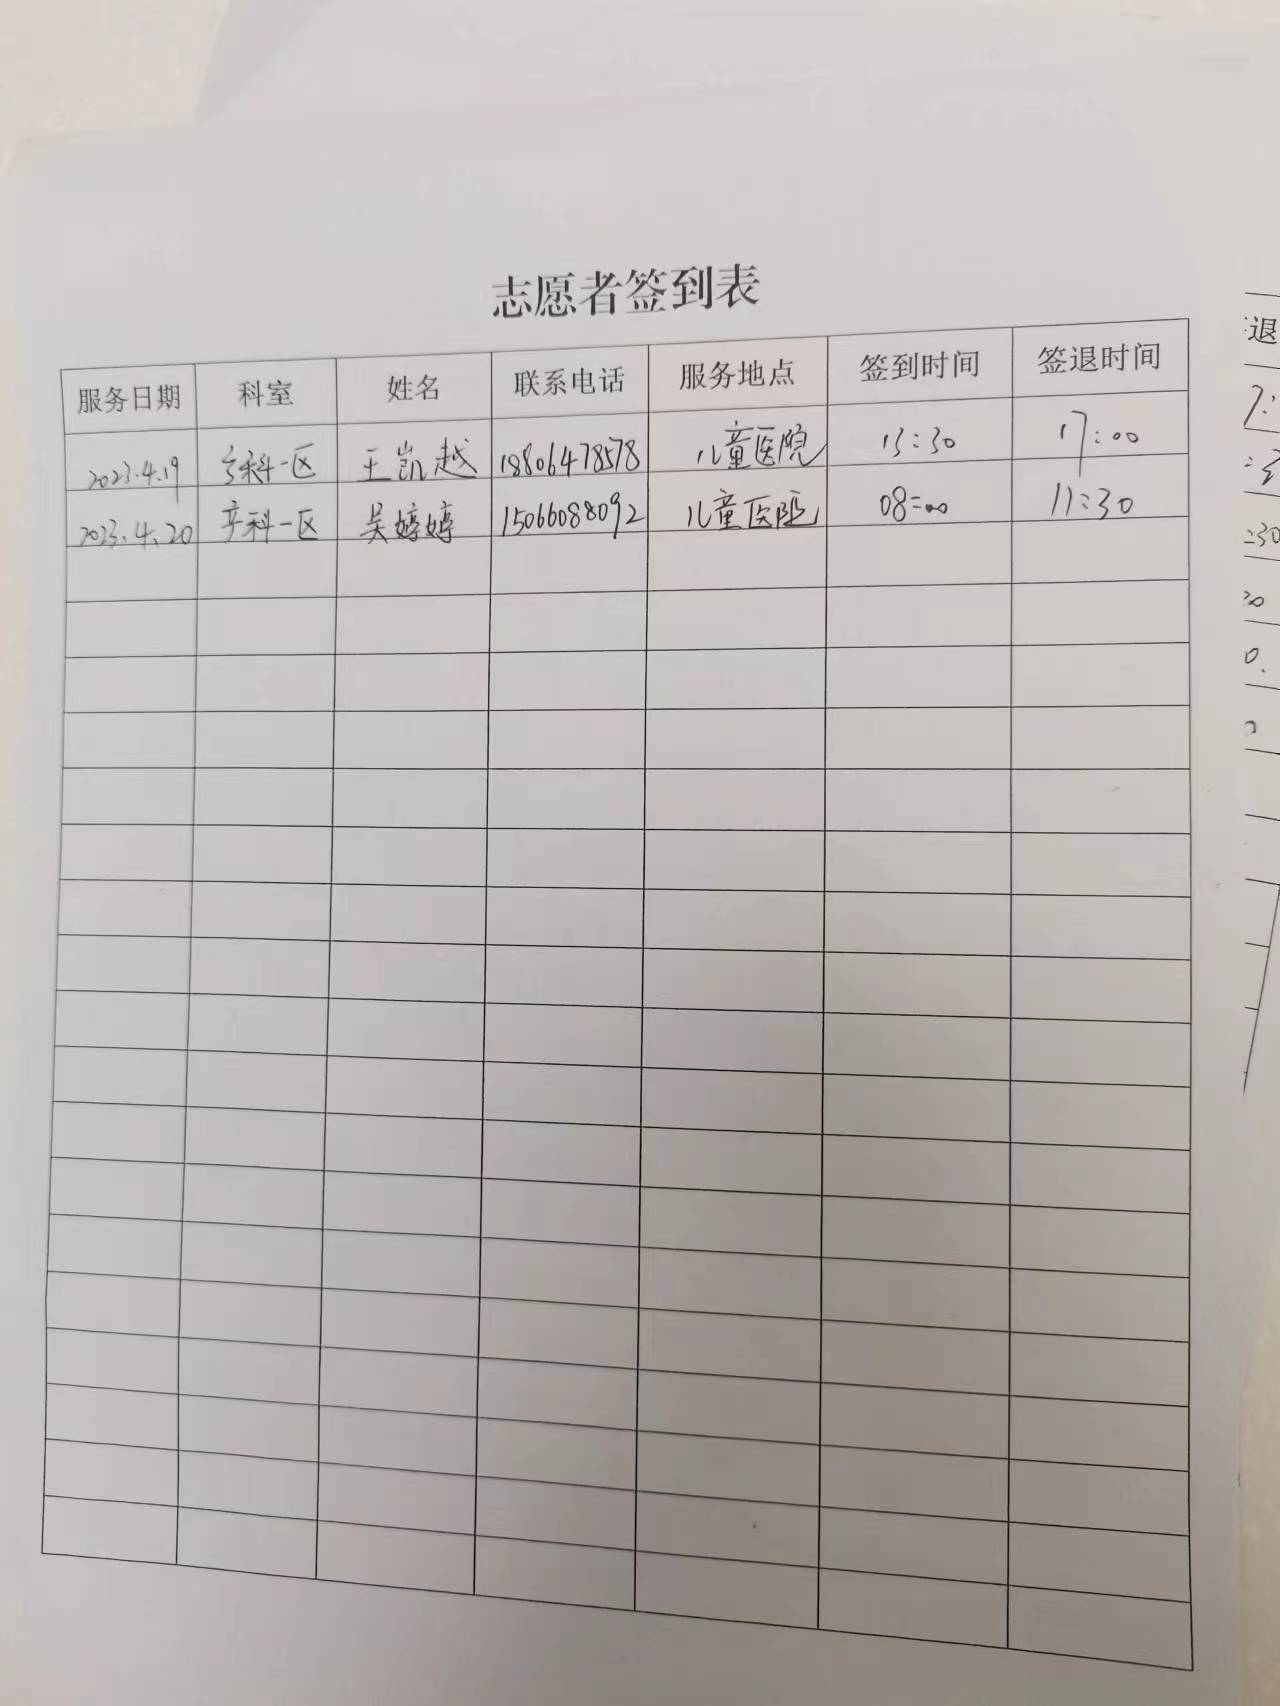 志愿者签到表
服务日期 科室 姓名 联系电话 服务地点 签到时间 签退时间
2023.4.19 产科一区 王凯越 18806478578 儿童医院 13:30 17:00
2023.4.20 产科一区 吴婷婷 15066088092 儿童医院 08:00 11:30
退
:30